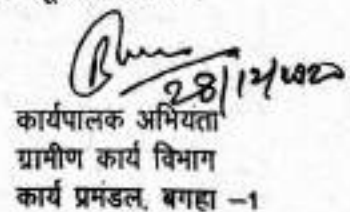 28/12/2020
कार्यपालक अभियंता
ग्रामीण कार्य विभाग
कार्य प्रमंडल, बगहा -1